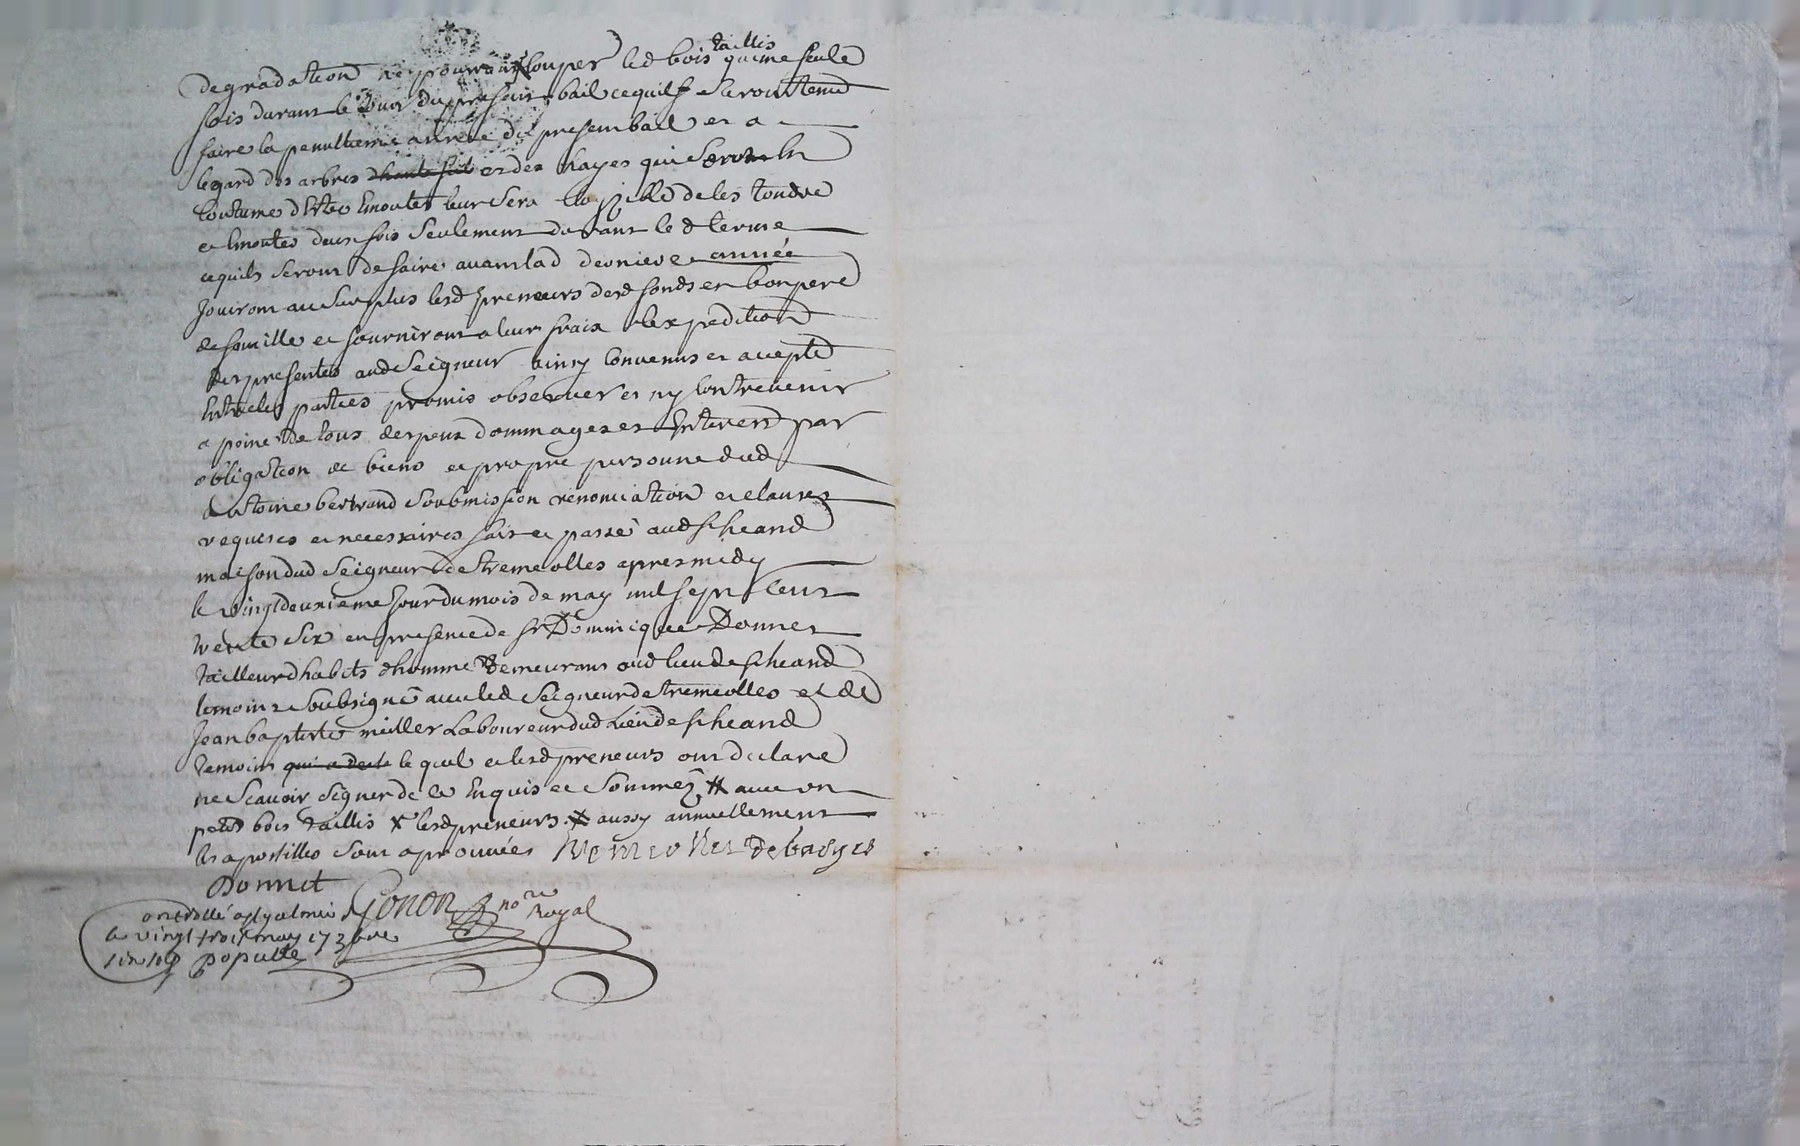 degradation ne pourront Couper led bois taillis qu'une seule
fois durant le cour du present bail ce quils seront tenus
faire la penultieme année du present bail et a
legard des arbres et des hayes qui seront En
Coutume d'Etre Emontés leur sera de les tondre
et Emontés deux fois seulement durant led terme
ce quils seront de faire avant lad derniere année
Jouiront au surplus lesd preneurs desd fonds en bon pere
de famille et fourniront a leur fraix l'expedition
des presentes aud Seigneur ainsy Convenus et accepté
Entre les parties promis observer et ny Contrevenir
a peine de tous despens dommages et Interest par
obligation de biens et propre personne dud
Antoine bertrand Soubmission renonciation et clauses
requises et necessaires fait et passé aud
maison dud Seigneur de Tremeolles apres midy
le vingtdeuxieme Jour du mois de may mil sept Cent
trente Six en presence de Sr Dominique Donnet
tailleur d'habits d'homme demeurant aud lieu de
temoin Soubsigné avec led Seigneur de tremeolles et de
Jean baptiste muller Laboureur dud Lieu de
temoin le quel et lesd preneurs ont declaré
ne Scavoir Signer de ce Enquis et Sommés # avec un
petit bois taillis x lesd preneurs # aussy annuellement
les apostilles sont aprouvées tremeolles de barges
Donnet
Gonon no.re Royal
Controllé
le vingt trois may 173
six sols